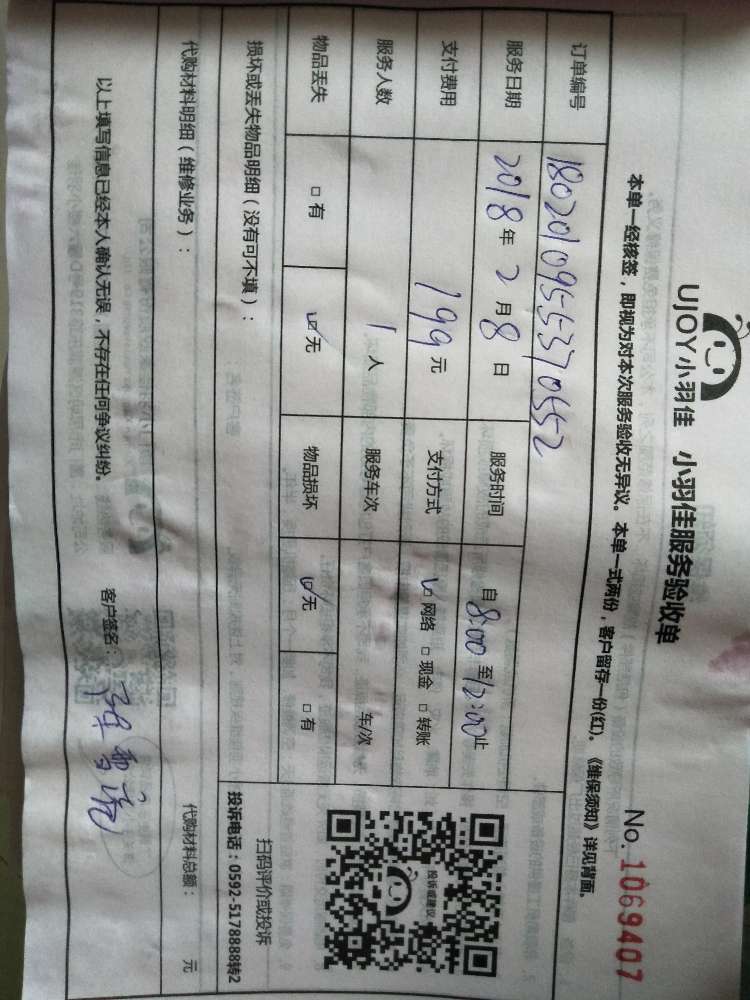 UJOY小羽佳 小羽佳服务验收单
No. 1069407
本单一经核签，即视为对本次服务验收无异议。本单一式两份，客户留存一份(红)。《维保须知》详见背面。
订单编号 1802010955370552
服务日期 2018年2月8日 服务时间 自8:00至12:00止
支付费用 199元 支付方式 ☑网络 □现金 □转账
服务人数 1人 服务车次 车/次
物品丢失 □有 ☑无 物品损坏 ☑无 □有
投诉或建议
扫码评价或投诉
投诉电话：0592-5178888转2
损坏或丢失物品明细（没有可不填）：
代购材料明细（维修业务）： 代购材料总额： 元
以上填写信息已经本人确认无误，不存在任何争议纠纷。 客户签名：